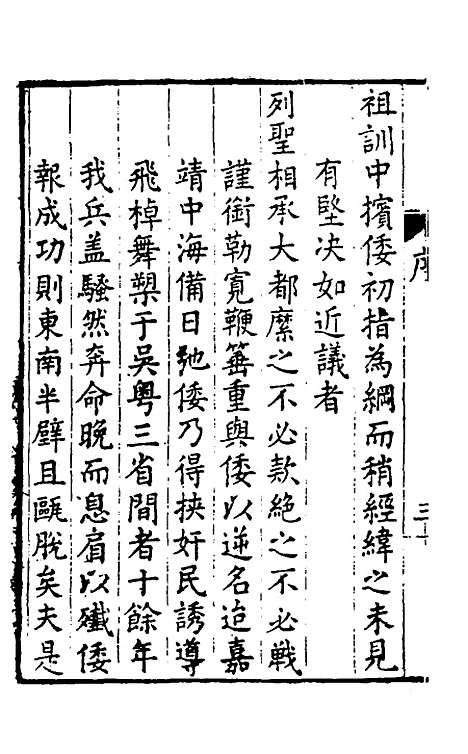 祖訓中擯倭初指為綱而稍經緯之未見
有堅决如近議者
列聖相承大都縻之不必款絶之不必戰
謹銜勒寬鞭箠重與倭以逆名迨嘉
靖中海備日弛倭乃得挾奸民誘導
飛棹舞槊于吳粤三省間者十餘年
我兵盖騷然奔命晚而息肩以殲倭
報成功則東南半壁且甌脱矣夫是